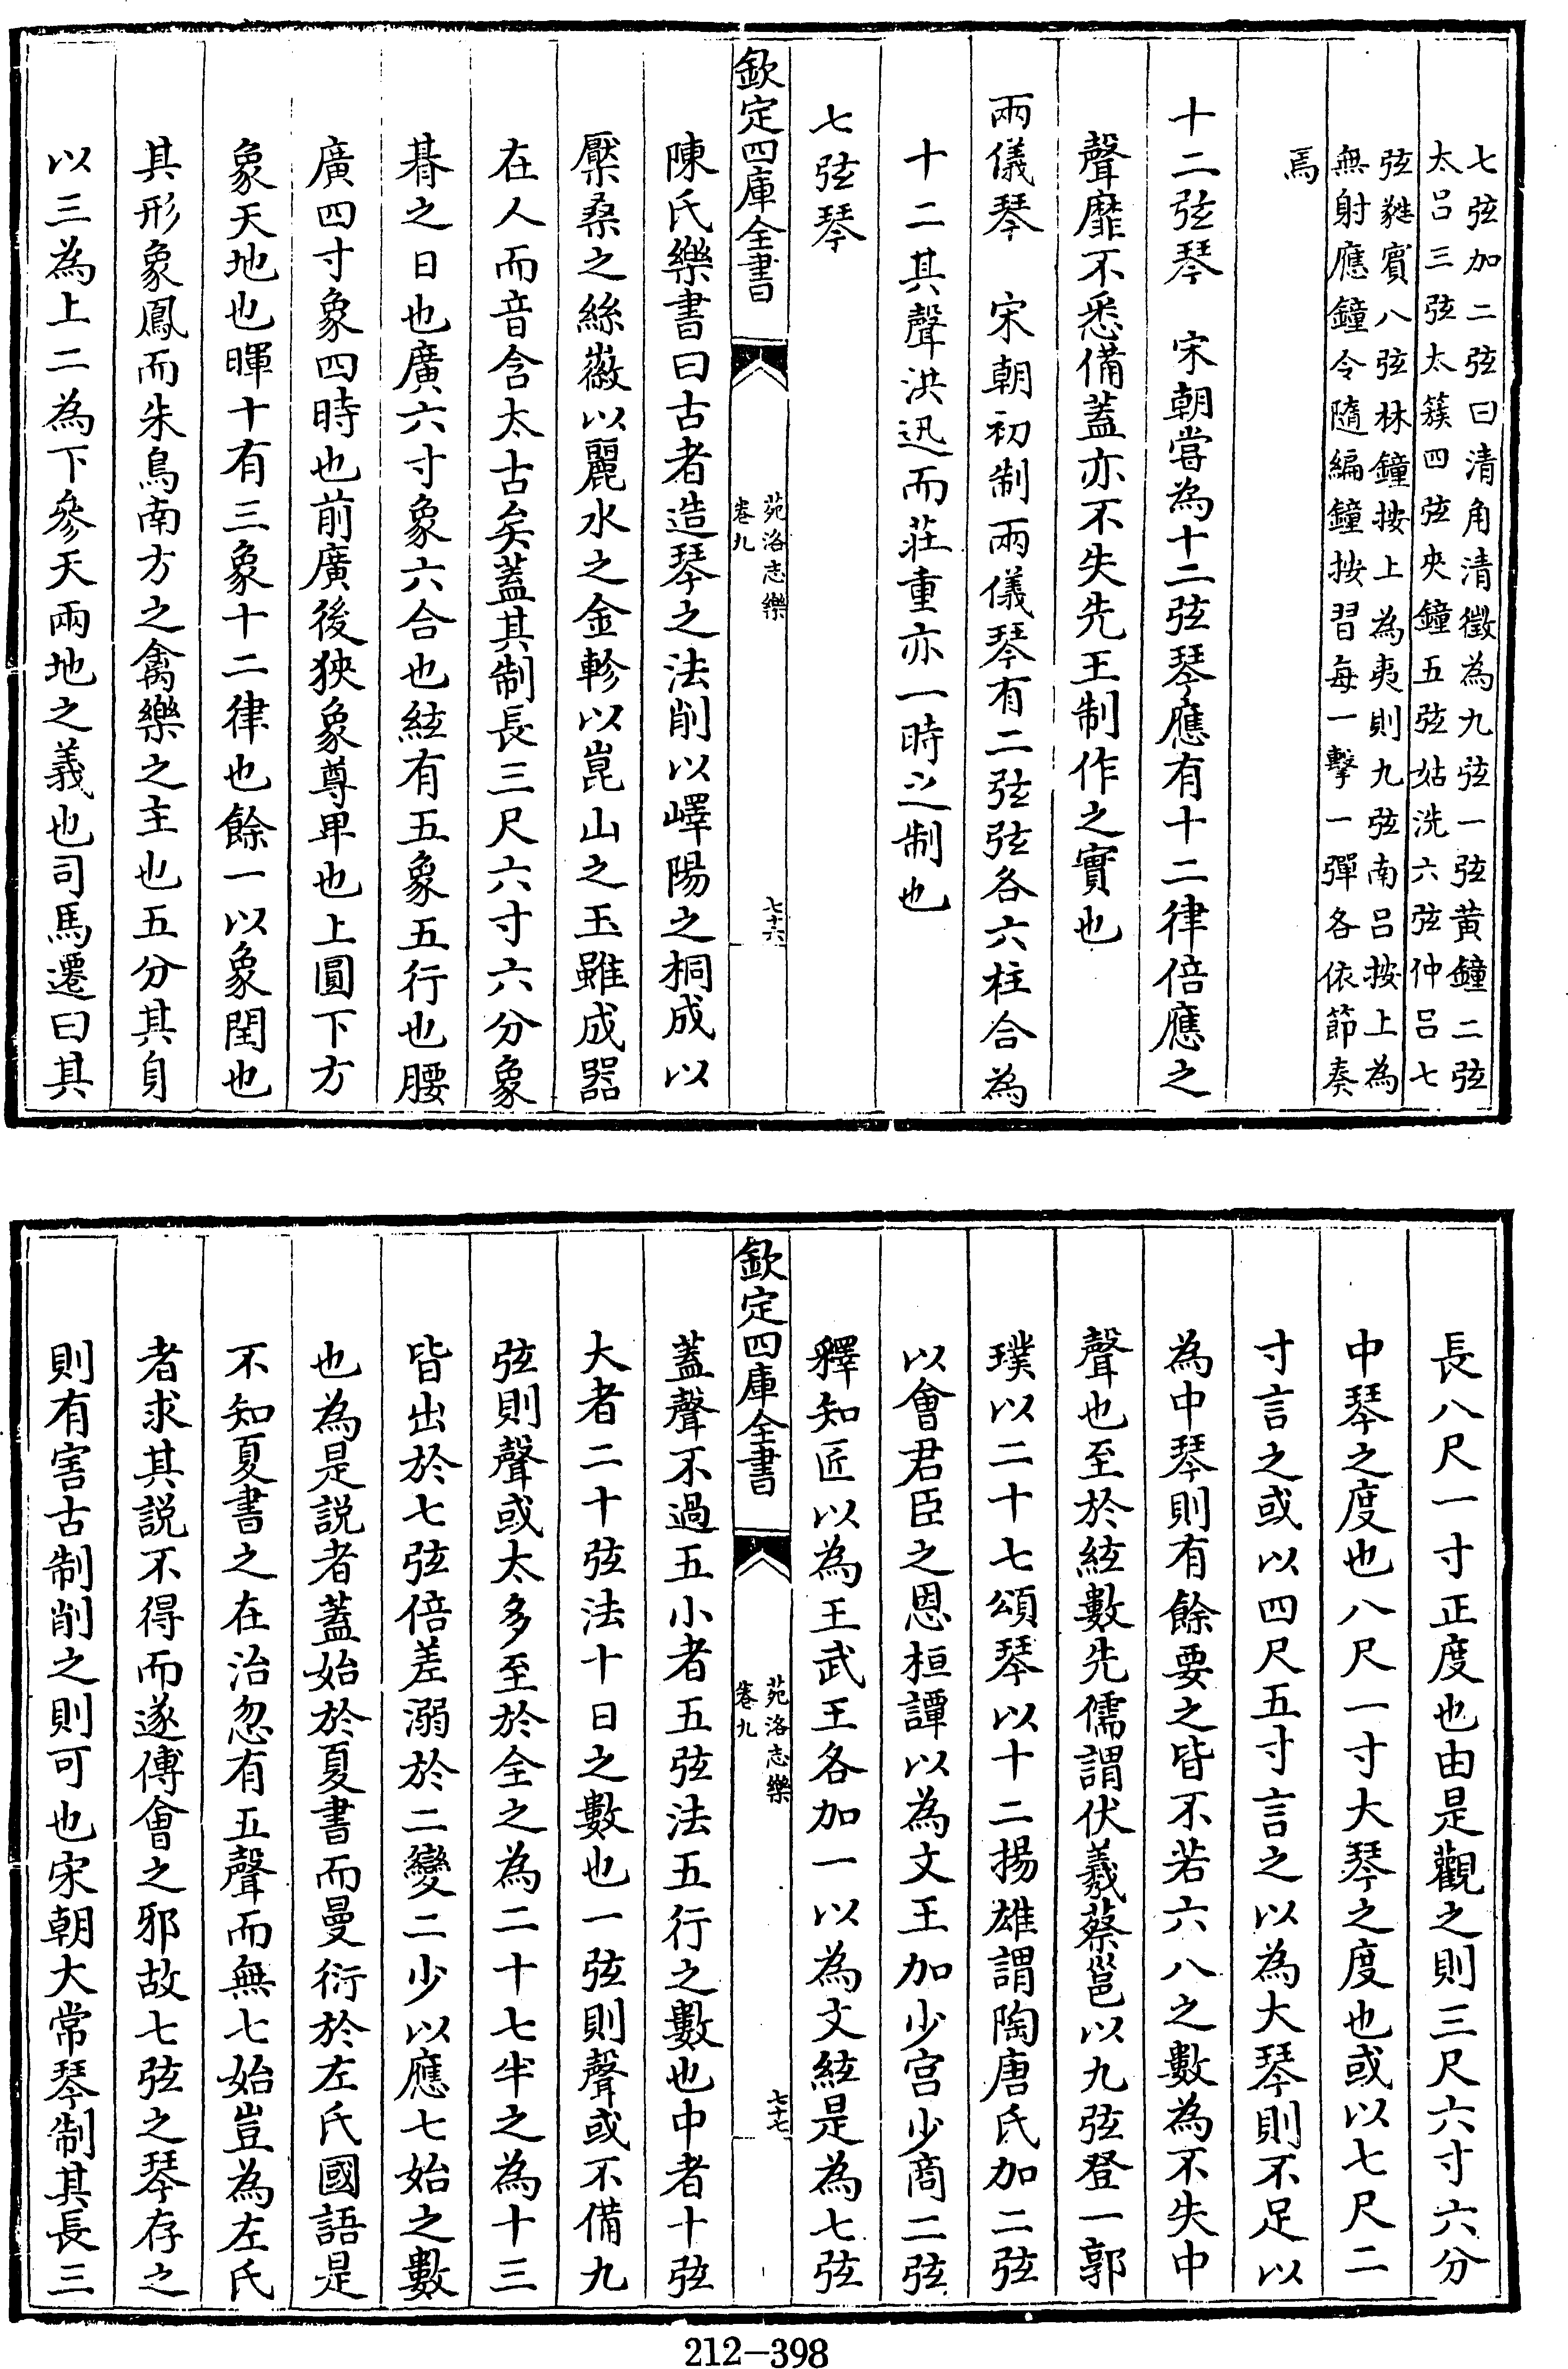 七弦加二弦曰清角清徵為九弦一弦黄鐘二弦
太吕三弦太簇四弦夾鐘五弦姑洗六弦仲吕七
弦蕤賓八弦林鐘按上為夷則九弦南吕按上為
無射應鐘令隨編鐘按習每一擊一彈各依節奏
焉
十二弦琴　宋朝嘗為十二弦琴應有十二律倍應之
聲靡不悉備蓋亦不失先王制作之實也
兩儀琴　宋朝初制兩儀琴有二弦弦各六柱合為
十二其聲洪迅而莊重亦一時之制也
七弦琴
欽定四庫全書
苑洛志樂
卷九
七十六
陳氏樂書曰古者造琴之法削以嶧陽之桐成以
檿桑之絲徽以麗水之金軫以崑山之玉雖成器
在人而音含太古矣蓋其制長三尺六寸六分象
朞之日也廣六寸象六合也絃有五象五行也腰
廣四寸象四時也前廣後狹象尊卑也上圓下方
象天地也暉十有三象十二律也餘一以象閏也
其形象鳳而朱鳥南方之禽樂之主也五分其身
以三為上二為下參天兩地之義也司馬遷曰其
長八尺一寸正度也由是觀之則三尺六寸六分
中琴之度也八尺一寸大琴之度也或以七尺二
寸言之或以四尺五寸言之以為大琴則不足以
為中琴則有餘要之皆不若六八之數為不失中
聲也至於絃數先儒謂伏羲蔡邕以九弦登一郭
璞以二十七頌琴以十二揚雄謂陶唐氏加二弦
以會君臣之恩桓譚以為文王加少宫少商二弦
釋知匠以為王武王各加一以為文絃是為七弦
欽定四庫全書
苑洛志樂
卷九
七十七
蓋聲不過五小者五弦法五行之數也中者十弦
大者二十弦法十日之數也一弦則聲或不備九
弦則聲或太多至於全之為二十七半之為十三
皆出於七弦倍差溺於二變二少以應七始之數
也為是説者蓋始於夏書而曼衍於左氏國語是
不知夏書之在治忽有五聲而無七始豈為左氏
者求其説不得而遂傅會之邪故七弦之琴存之
則有害古制削之則可也宋朝大常琴制其長三
212-398